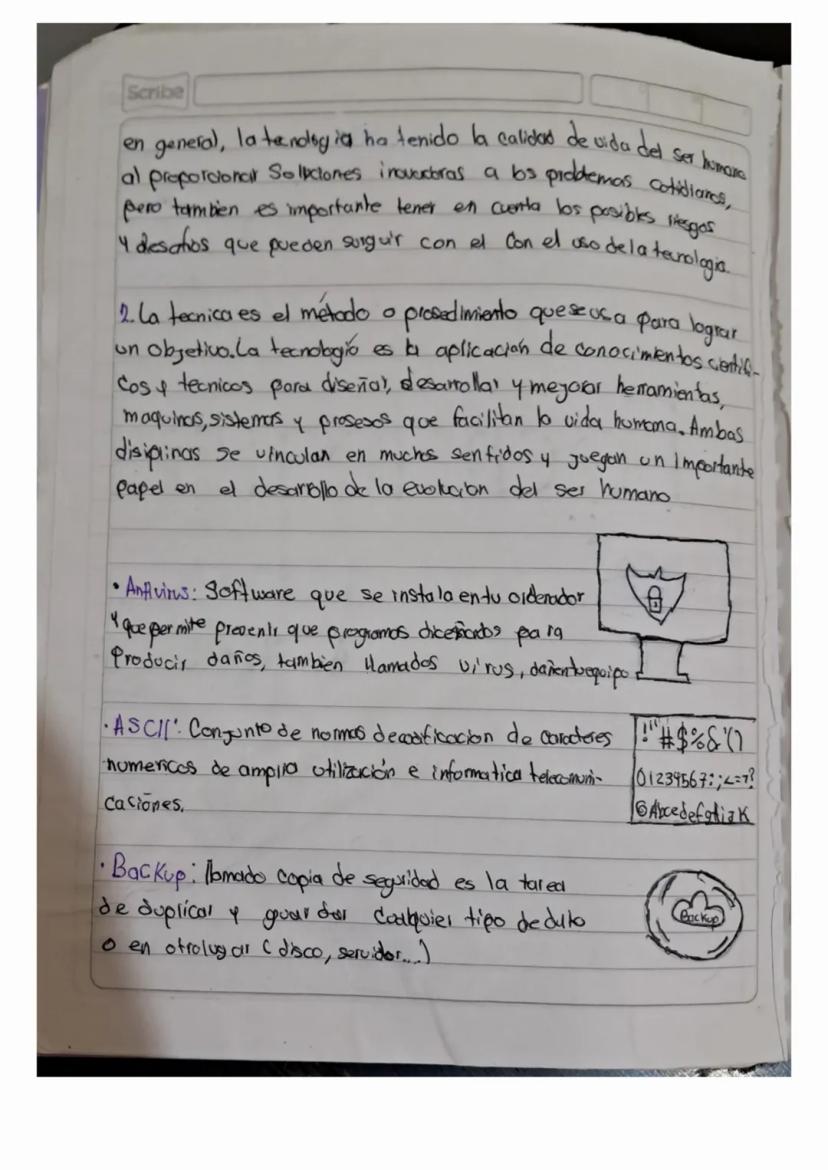 Scribe
en general, la tecnologia ha tenido la calidad de vida del ser humano
al proporcionar Soluciones inovadoras a los problemas cotidianos,
pero tambien es importante tener en cuenta los posibles riesgos
y desafios que pueden surguir con el con el uso de la tecnologia.
2. La tecnica es el método o prosedimiento que se usa para lograr
un objetivo. La tecnología es la aplicación de conocimientos cientifi-
cos y tecnicos para diseñar, desarrollar y mejorar herramientas,
maquinas, sistemas y prosesos que facilitan la vida humana. Ambas
disiplinas se vinculan en muchos sentidos y juegan un importante
papel en el desarollo de la evolucion del ser humano
• Antivirus: Software que se instala en tu ordenador
y que permite prevenir que programas diceñados para
Producir daños, tambien llamados virus, dañen tu equipo
• ASCII: Conjunto de normas de codificacion de caracteres
numericos de amplia utilización e informatica telecomuni-
caciones.
!"#$%&'()
01234567:;<=>?
@Abcdefghijk
• Backup: llamado copia de seguridad es la tarea
de duplicar y guardar cualquier tipo de dato
o en otro lugar (disco, servidor...)
Backup